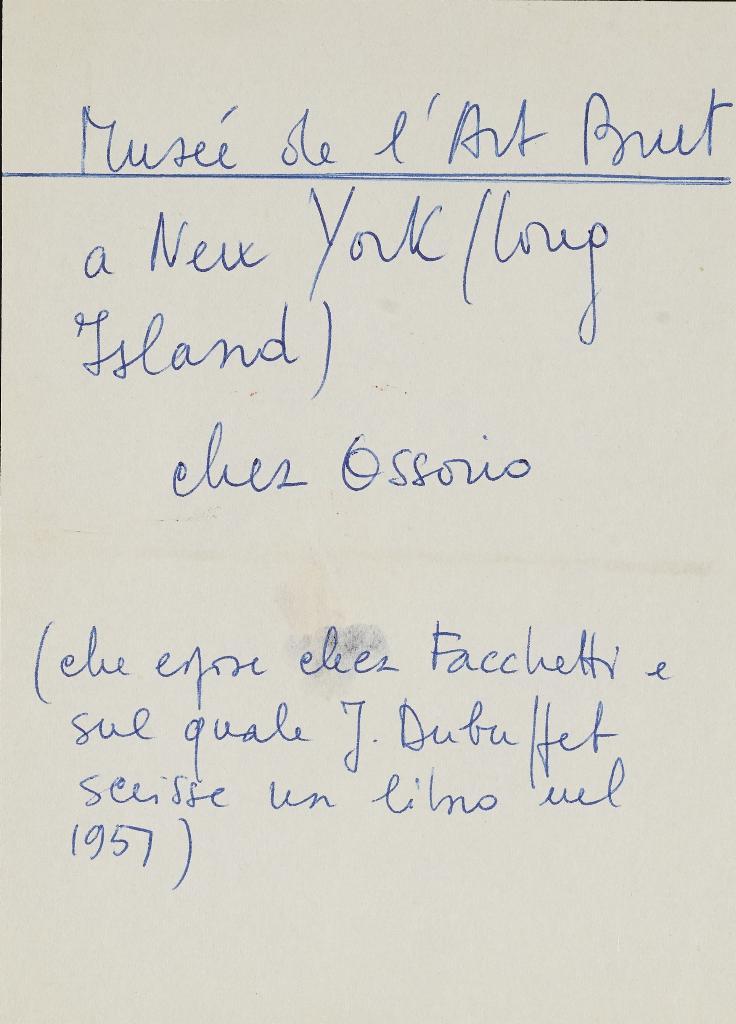 Museé de l'Art Brut
a New York (Long
Island)
chez Ossorio
(che espose chez Facchetti e
sul quale J. Dubuffet
scrisse un libro nel
1951)